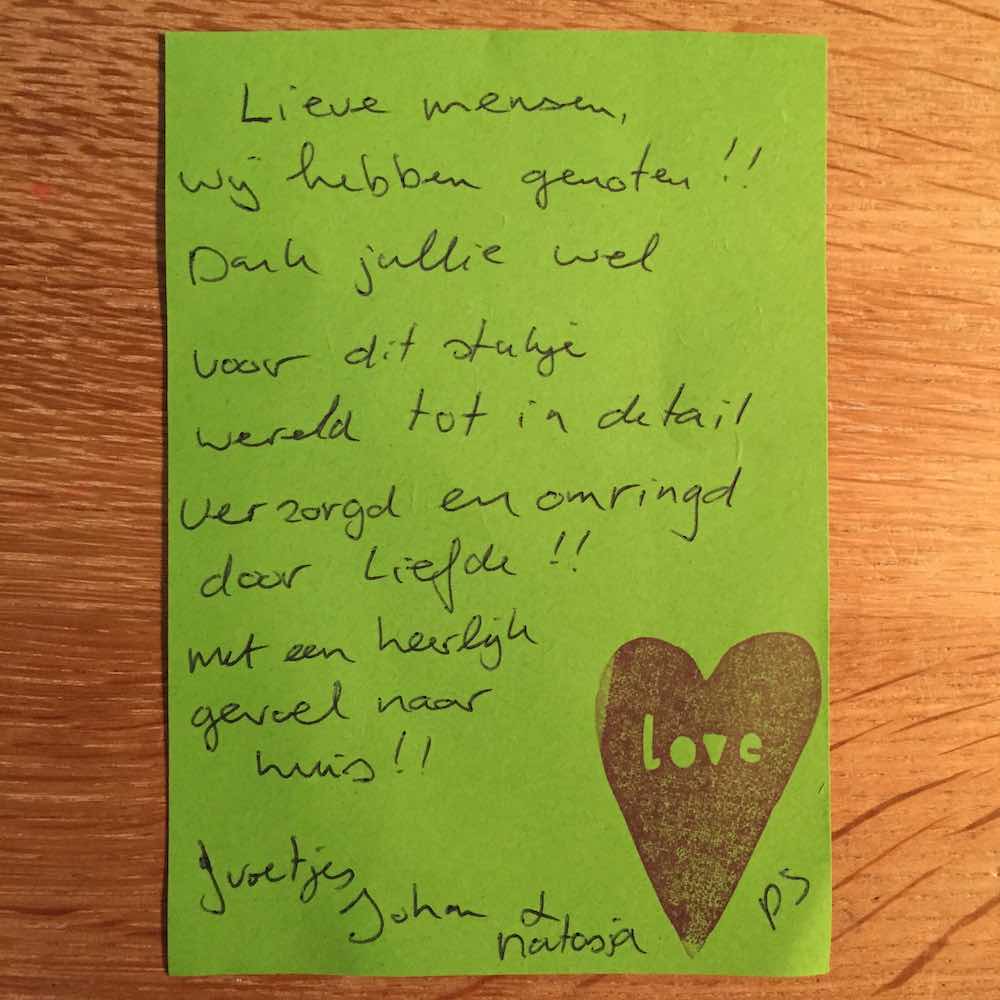 Lieve mensen,
wij hebben genoten!!
Dank jullie wel
voor dit stukje
wereld tot in detail
verzorgd en omringd
door Liefde!!
met een heerlijk
gevoel naar
huis!!
love
Groetjes
Johan &
natasja
PS